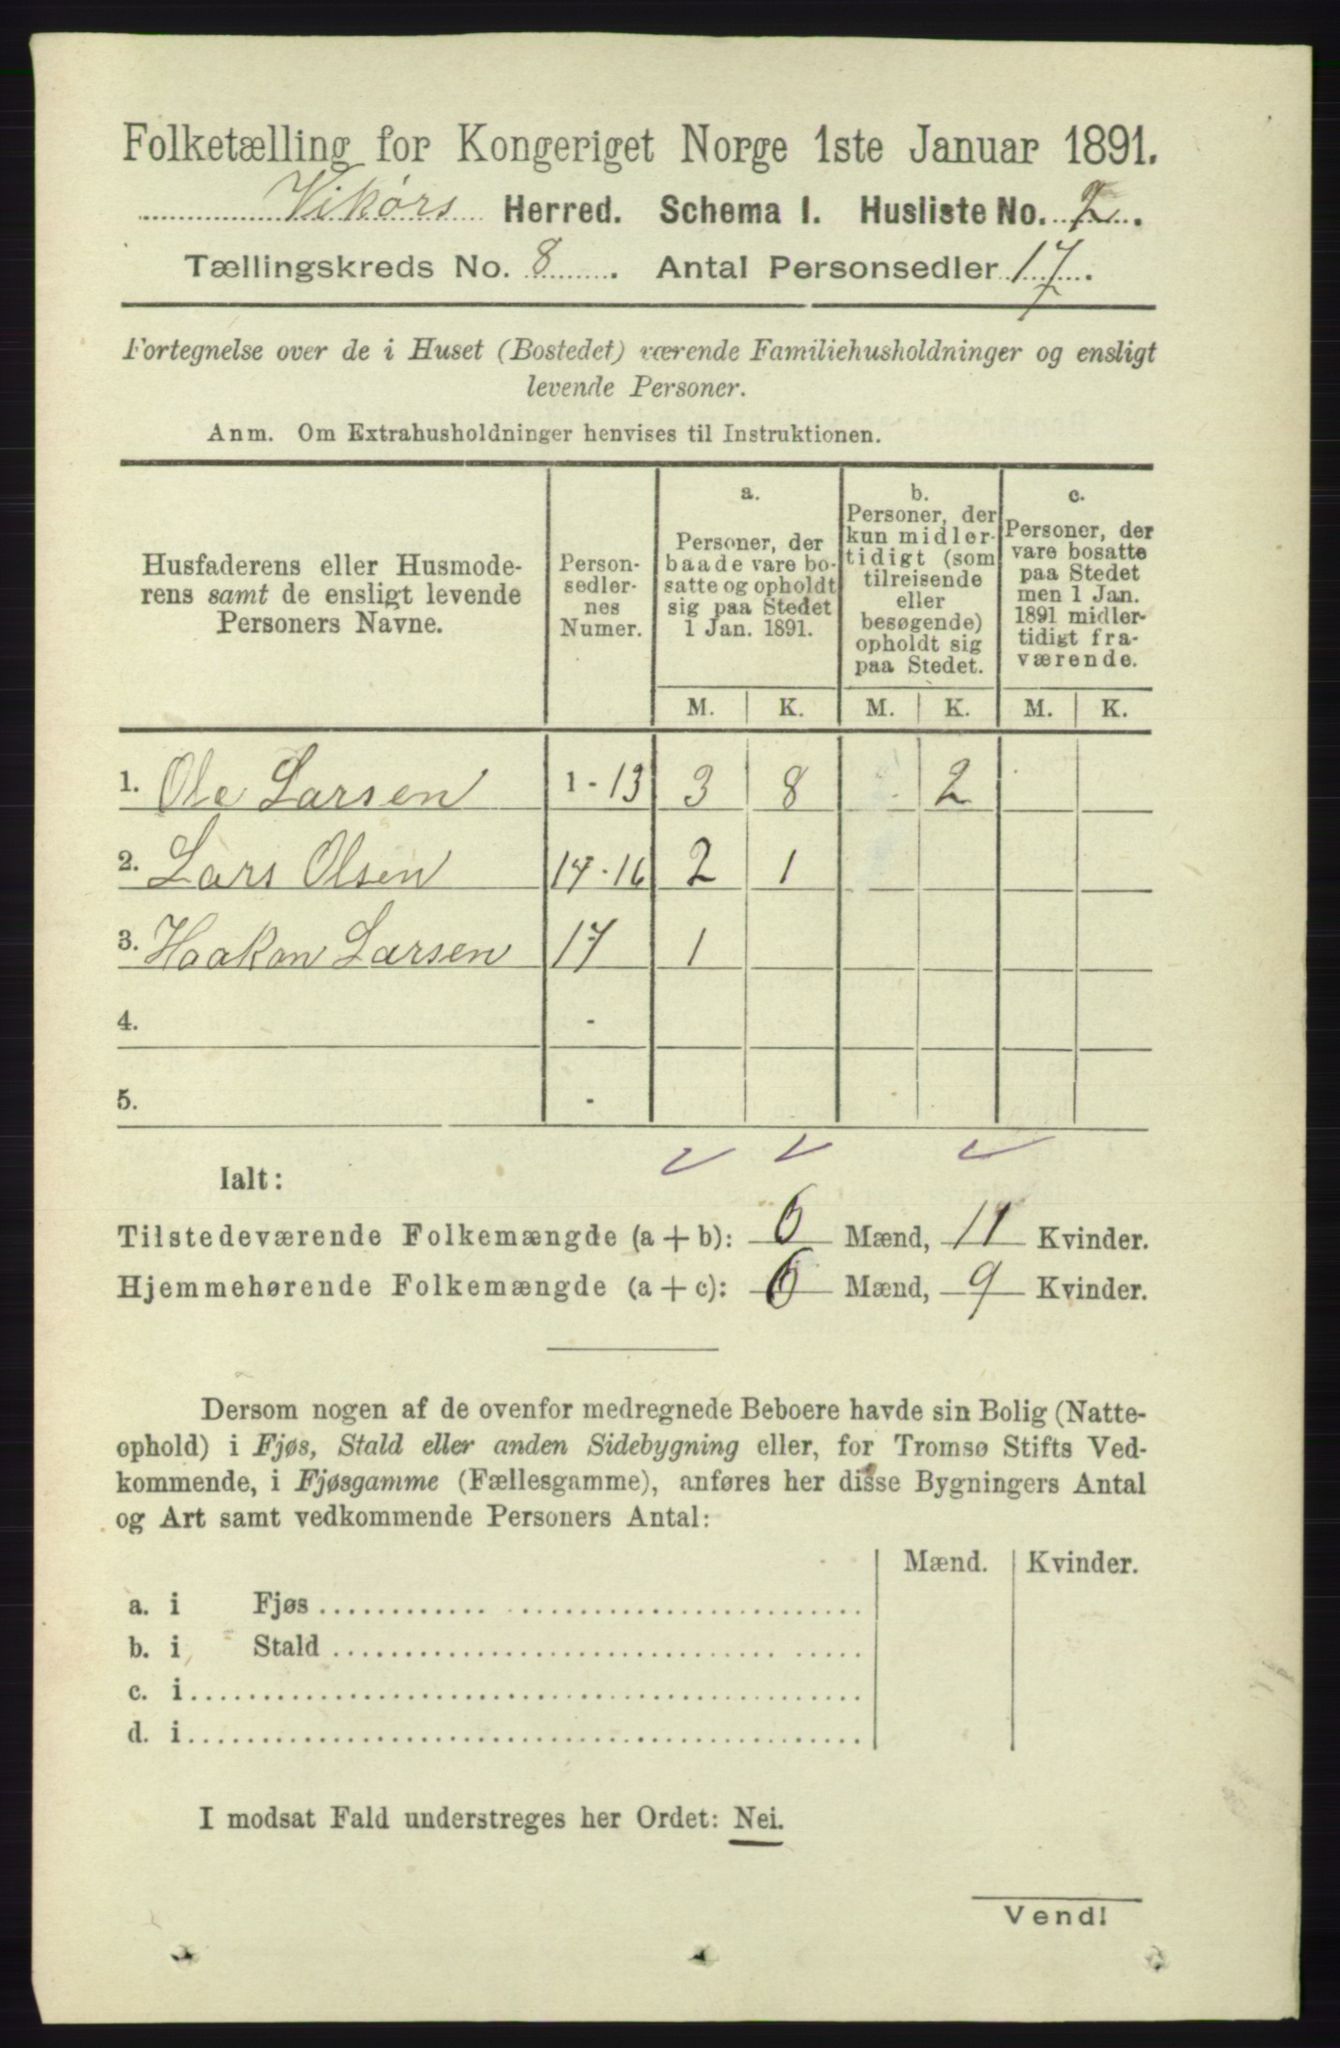 Folketælling for Kongeriget Norge 1ste Januar 1891.
Vikørs Herred. Schema I. Husliste No. 2.
Tællingskreds No. 8. Antal Personsedler 17.
Fortegnelse over de i Huset (Bostedet) værende Familiehusholdninger og ensligt
levende Personer.
Anm. Om Extrahusholdninger henvises til Instruktionen.
Husfaderens eller Husmode-
rens samt de ensligt levende
Personers Navne.
Person-
sedler-
nes
Numer.
a.
Personer, der
baade vare bo-
satte og opholdt
sig paa Stedet
1 Jan. 1891.
b.
Personer, der
kun midler-
tidigt (som
tilreisende
eller
besøgende)
opholdt sig
paa Stedet.
c.
Personer, der
vare bosatte
paa Stedet
men 1 Jan.
1891 midler-
tidigt fra-
værende.
M. K. M. K. M. K.
1. Ole Larsen 1 - 13 3 8 2
2. Lars Olsen 14 - 16 2 1
3. Haakon Larsen 17 1
4. -
5. -
Ialt:
Tilstedeværende Folkemængde (a + b): 6 Mænd, 11 Kvinder.
Hjemmehørende Folkemængde (a + c): 6 Mænd, 9 Kvinder.
Dersom nogen af de ovenfor medregnede Beboere havde sin Bolig (Natte-
ophold) i Fjøs, Stald eller anden Sidebygning eller, for Tromsø Stifts Ved-
kommende, i Fjøsgamme (Fællesgamme), anføres her disse Bygningers Antal
og Art samt vedkommende Personers Antal:
Mænd. Kvinder.
a. i Fjøs
b. i Stald
c. i
d. i
I modsat Fald understreges her Ordet: Nei.
Vend!